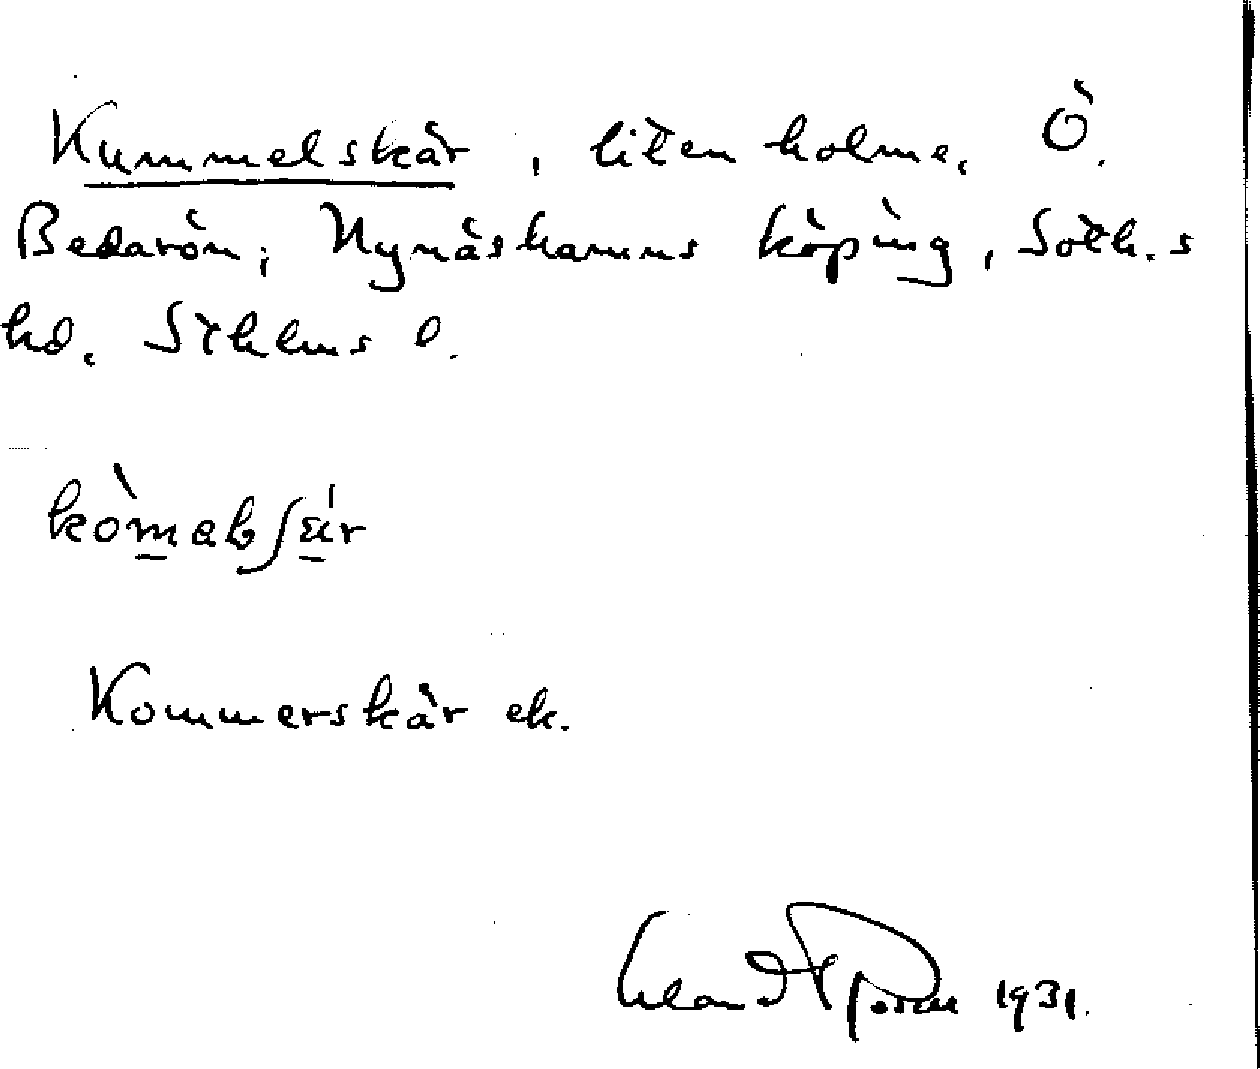 Kummelskär, liten holme, Ö.
Bedarön; Nynäshamns köping, Soth.s
hd. Sthlms l.
Kommerskär ek.
1931.